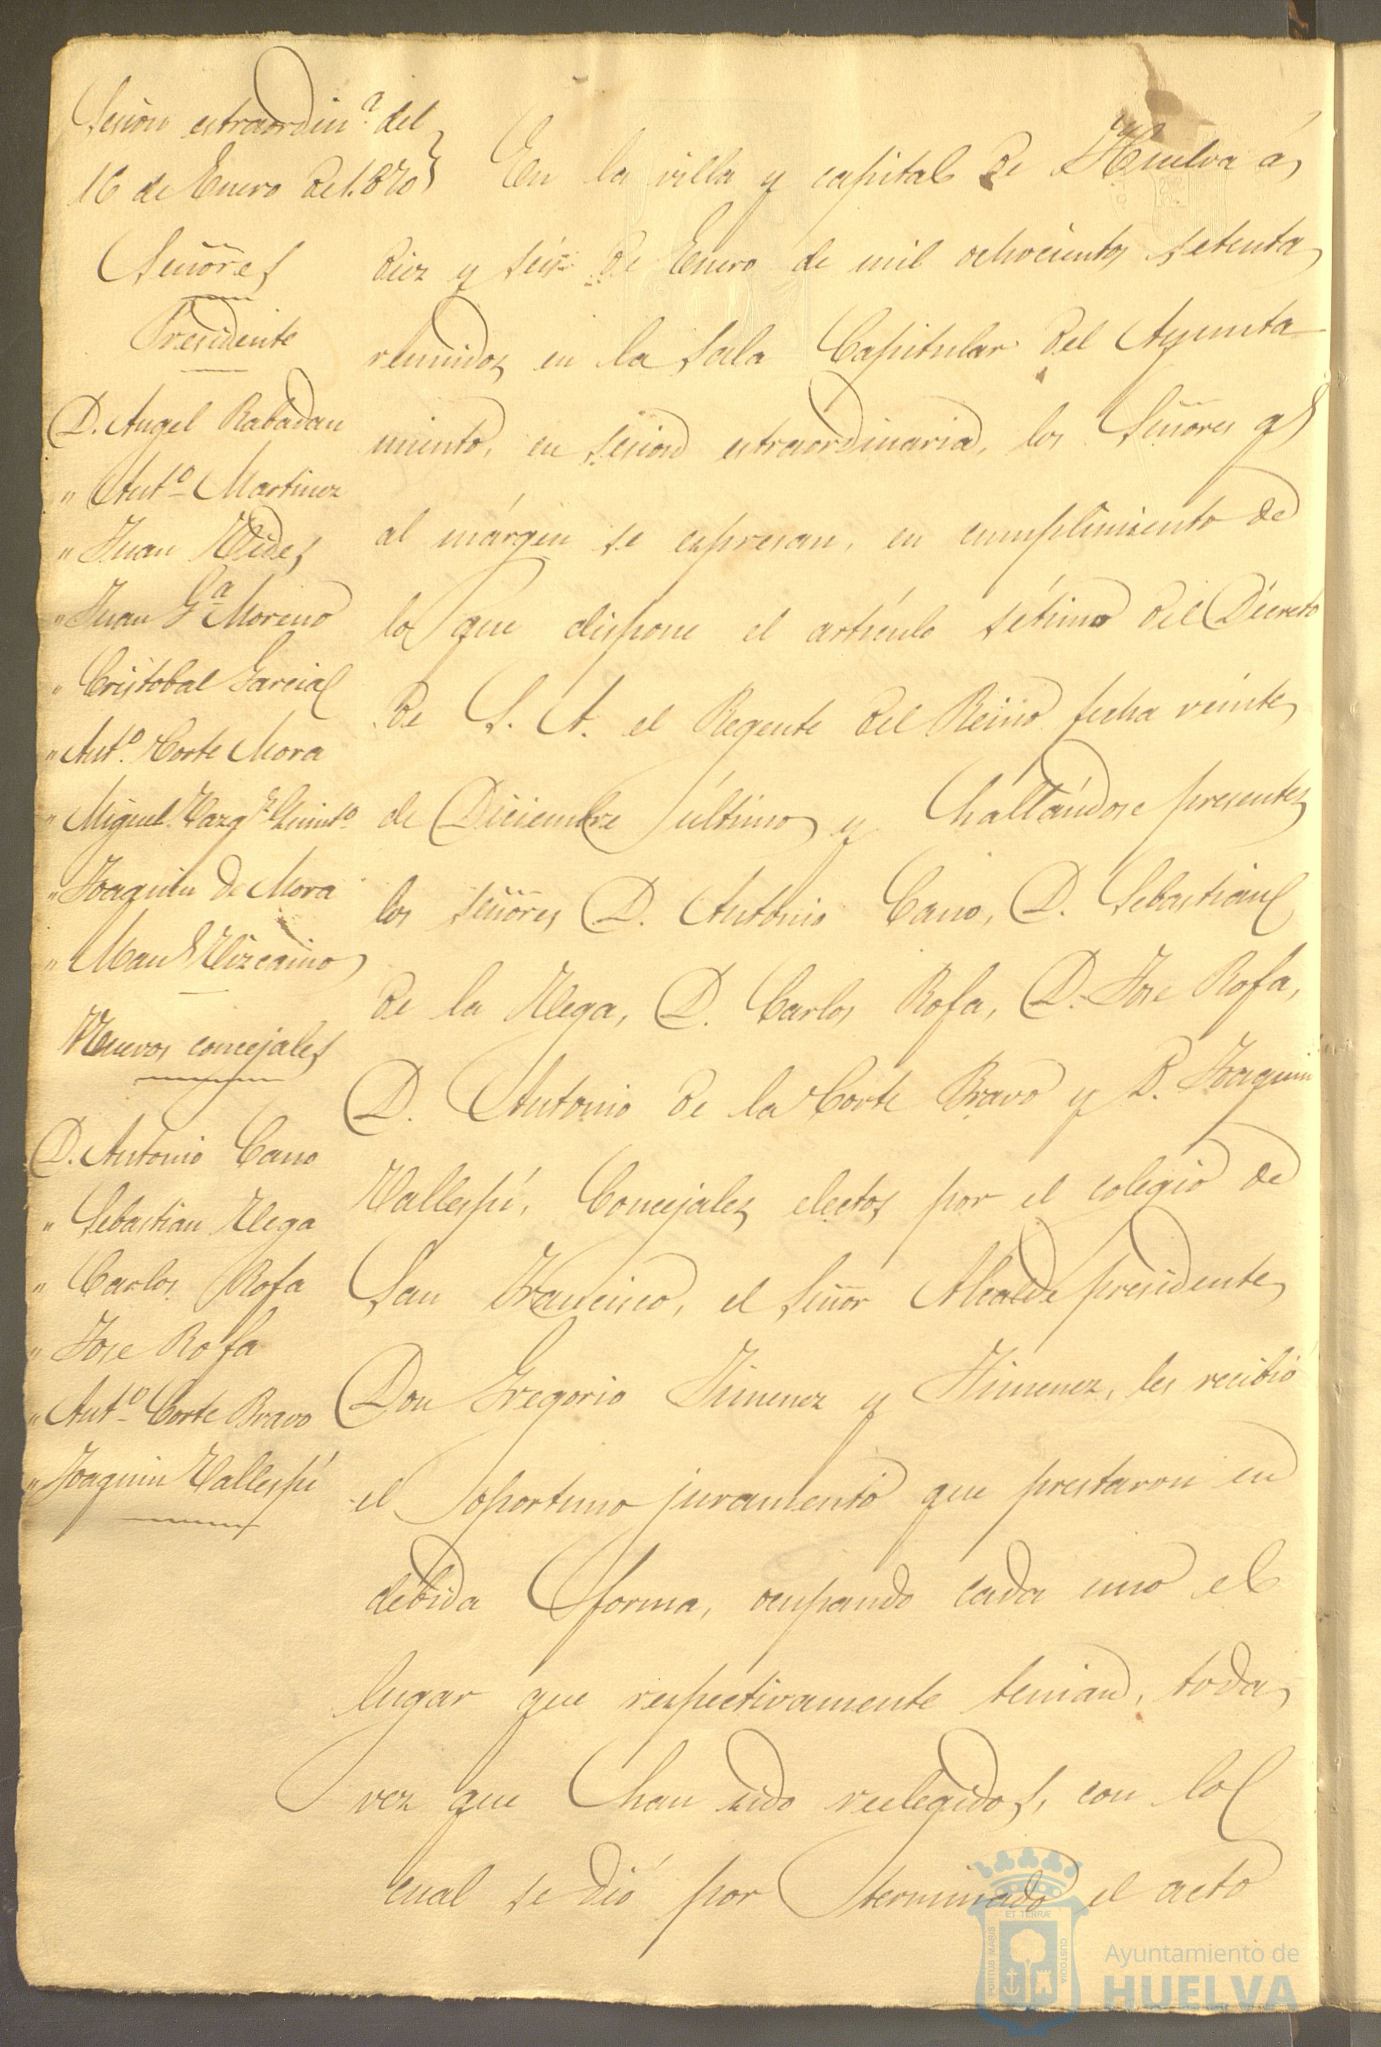 Sesion estraordin.ª del
16 de Enero de 1.870
Señores
Presidente
D. Angel Rabadan
" Ant.º Martinez
" Juan Vides
" Juan G.ª Moreno
" Cristobal Garcia
" Ant.º Corte Mora
" Miguel Vazq.z
" Joaquin de Mora
" Man.l Vizcaino
Nuevos concejales
D. Antonio Cano
" Sebastian Vega
" Carlos Rofa
" Jose Rofa
" Ant.º Corte Bravo
" Joaquin Vallespí
En la villa y capital de Huelva á
diez y seis de Enero de mil ochocientos setenta
reunidos en la Sala Capitular del Ayunta
miento, en sesion estraordinaria, los Señores q.e
al márgen se espresan, en cumplimiento de
lo que dispone el artículo sétimo del Décreto
de S. A. el Regente del Reino fecha veinte
de Diciembre último y hallándose presentes
los señores D. Antonio Cano, D. Sebastian
de la Vega, D. Carlos Rofa, D. Jose Rofa,
D. Antonio de la Corte Bravo y D. Joaquin
Vallespí, Concejales electos por el colegio de
San Francisco, el Señor Alcalde presidente
Don Gregorio Jimenez y Jimenez, les recibió
el oportuno juramento que prestaron en
debida forma, ocupando cada uno el
lugar que respectivamente tenian, toda
vez que han sido reelegidos, con lo
cual se dió por terminado el acto
PORTUS MARIS
ET TERRÆ
CUSTODIA
Ayuntamiento de
HUELVA